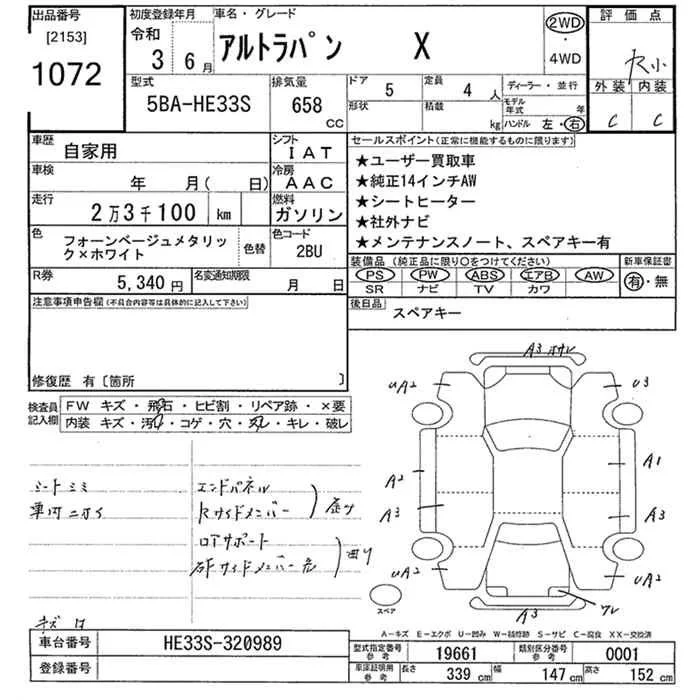 出品番号
[2153]
1072
初度登録年月
令和
3 6月
車名・グレード
アルトラパン X
2WD
・
4WD
評価点
外装 内装
C C
型式
5BA-HE33S
排気量
658
CC
ドア
5
定員
4 人
形状
積載
kg
ディーラー・並行
モデル年式 年
ハンドル 左・右
車歴
自家用
シフト
IAT
車検
年 月( 日)
冷房
AAC
走行
2万3千100 km
燃料
ガソリン
色
フォーンベージュメタリック×ホワイト
色替
色コード
2BU
R券
5,340円
名変通知期限
月 日
セールスポイント(正常に機能するものに限ります)
★ユーザー買取車
★純正14インチAW
★シートヒーター
★社外ナビ
★メンテナンスノート、スペアキー有
装備品(純正品に限り○をつけてください)
PS PW ABS エアB AW
SR ナビ TV カワ
新車保証書
有・無
後日品
スペアキー
注意事項申告欄(不具合内容等は具体的に記入して下さい)
修復歴 有〔箇所 〕
検査員記入欄
FW キズ・飛石・ヒビ割・リペア跡・×要
内装 キズ・汚れ・コゲ・穴・スレ・キレ・破レ
シートシミ
車内ニオイ
エンドパネル
Rサイドメンバー
ロアサポート
曲り
キズ
A3
UA2
U3
A2
A1
A3
A3
UA2
UA2
A3
ワレ
スペア
A-キズ E-エクボ U-凹み W-補修跡 S-サビ C-腐食 XX-交換済
車台番号
HE33S-320989
登録番号
型式指定番号
参考
19661
類別区分番号
参考
0001
車庫証明用
参考
長さ
339 cm
幅
147 cm
高さ
152 cm